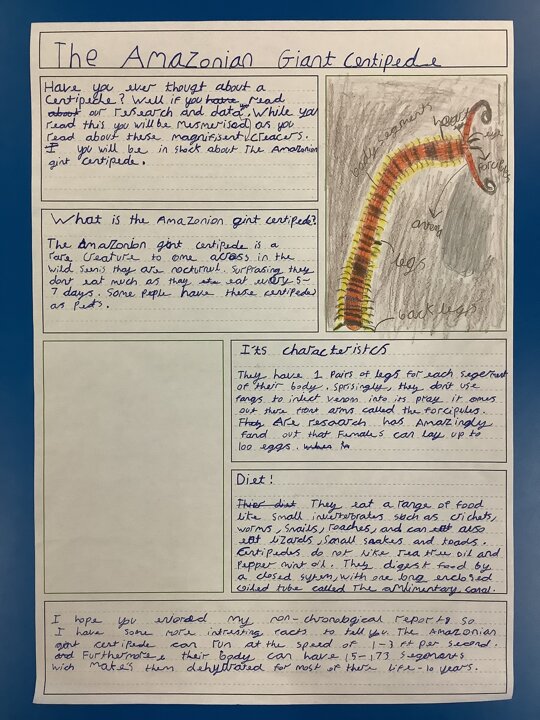 The Amazonian Giant Centipede
Have you ever thougt about a
Centipede? Well if you have read
about our research and data, While you
read this you will be mesmerised as you
read about these magnifisent creacers.
I you will be in shock about The Amazonian
gint centipede.
body segments
head
eye
forcibles
legs
back legs
What is the Amazonian gint centipede?
The Amazonian gint centipede is a
rare creature to come across in the
wild seens they are nocturnal. Surprasing they
dont eat much as they eat every 5-
7 days. Some people have these centipedes
as pests.
It's characteristcs
They have 1 Pairs of legs for each segement
of their body. Sprisingly, they don't use
fangs to infect venom into its pray it comes
out there front arms called the forcipules.
Are research has Amazingly
fand out that Females can lay up to
100 eggs.
Diet!
Thier diet They eat a range of food
like small invertebrates such as crickets,
worms, snails, roaches, and can eat also
eat lizards, small snakes and toads.
Centipedes do not like Tea tree oil and
Pepper mint oil. They digest food by
a closed sytem, with one long enclosed
coiled tube called the amlimentary canal.
I hope you enjoyed my non-chronological report so
I have some more intristing facts to tell you. The Amazonian
gint centipede can run at the speed of 1-3 ft per second.
and Furthermore, their body can have 15-173 segments
wich makes them dehydrated for most of there life-10 years.